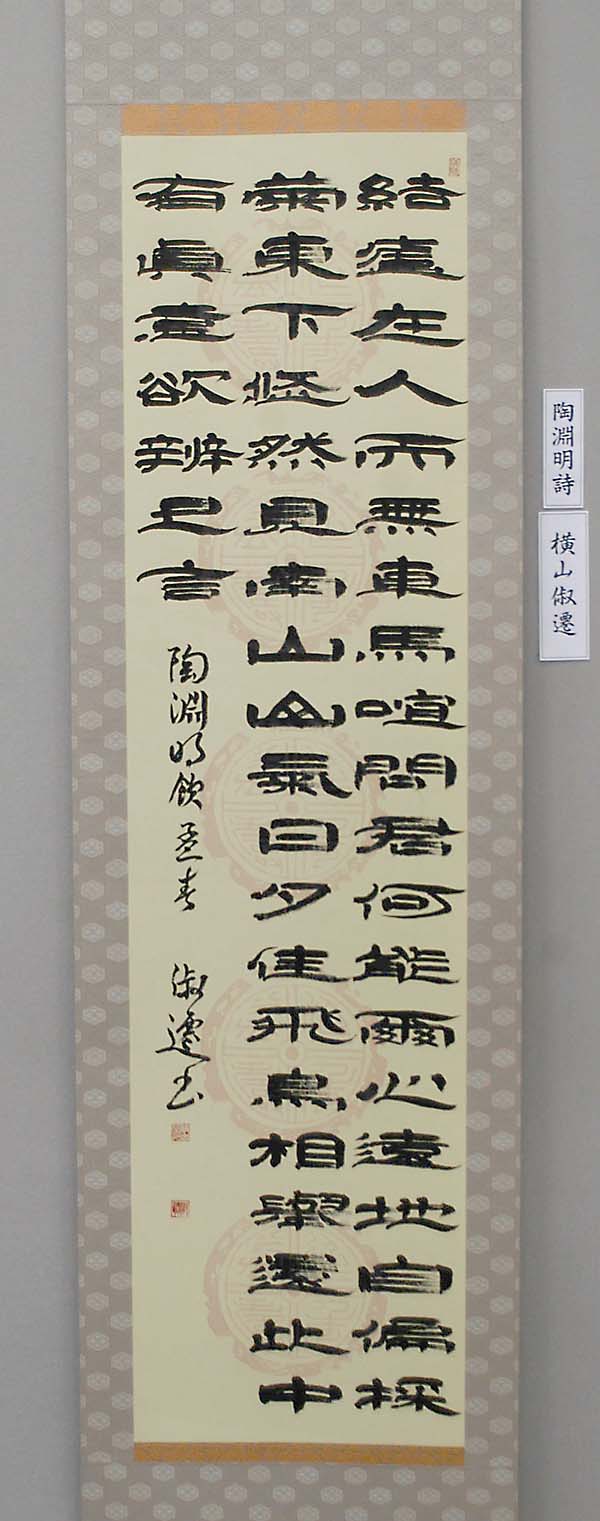 結廬在人而無車馬喧問君何能爾心遠地自偏採
菊東下悠然見南山山氣日夕佳飛鳥相與還此中
有眞意欲辨已言
陶淵明飲 孟春 俶遷書
陶淵明詩
横山俶遷